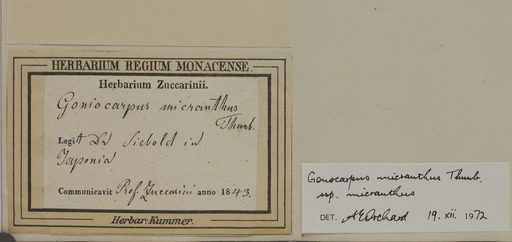 HERBARIUM REGIUM MONACENSE
Herbarium Zuccarinii.
Goniocarpus micranthus
Thunb.
Legit Dr Siebold in
Japonia
Communicavit Prof. Zuccarini anno 1843.
Herbar. Kummer.
Gonocarpus micranthus Thunb.
ssp. micranthus
DET. AEOrchard 19. xii. 1972